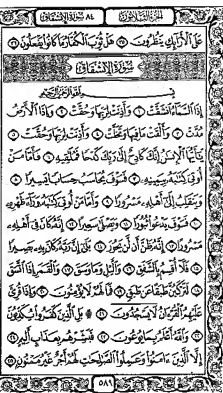 سورة الانشقاق ٨٤ الجزء الثلاثون
عَلَى الْأَرَائِكِ يَنظُرُونَ ٣٥ هَلْ ثُوِّبَ الْكُفَّارُ مَا كَانُوا يَفْعَلُونَ ٣٦
سورة الانشقاق
بسم الله الرحمن الرحيم
إِذَا السَّمَاءُ انشَقَّتْ ١ وَأَذِنَتْ لِرَبِّهَا وَحُقَّتْ ٢ وَإِذَا الْأَرْضُ
مُدَّتْ ٣ وَأَلْقَتْ مَا فِيهَا وَتَخَلَّتْ ٤ وَأَذِنَتْ لِرَبِّهَا وَحُقَّتْ ٥
يَا أَيُّهَا الْإِنسَانُ إِنَّكَ كَادِحٌ إِلَى رَبِّكَ كَدْحًا فَمُلَاقِيهِ ٦ فَأَمَّا مَنْ
أُوتِيَ كِتَابَهُ بِيَمِينِهِ ٧ فَسَوْفَ يُحَاسَبُ حِسَابًا يَسِيرًا ٨
وَيَنقَلِبُ إِلَى أَهْلِهِ مَسْرُورًا ٩ وَأَمَّا مَنْ أُوتِيَ كِتَابَهُ وَرَاءَ ظَهْرِهِ ١٠
فَسَوْفَ يَدْعُو ثُبُورًا ١١ وَيَصْلَى سَعِيرًا ١٢ إِنَّهُ كَانَ فِي أَهْلِهِ
مَسْرُورًا ١٣ إِنَّهُ ظَنَّ أَن لَّن يَحُورَ ١٤ بَلَى إِنَّ رَبَّهُ كَانَ بِهِ بَصِيرًا ١٥
فَلَا أُقْسِمُ بِالشَّفَقِ ١٦ وَاللَّيْلِ وَمَا وَسَقَ ١٧ وَالْقَمَرِ إِذَا اتَّسَقَ ١٨
لَتَرْكَبُنَّ طَبَقًا عَن طَبَقٍ ١٩ فَمَا لَهُمْ لَا يُؤْمِنُونَ ٢٠ وَإِذَا قُرِئَ
عَلَيْهِمُ الْقُرْآنُ لَا يَسْجُدُونَ ۩ ٢١ بَلِ الَّذِينَ كَفَرُوا يُكَذِّبُونَ
٢٢ وَاللَّهُ أَعْلَمُ بِمَا يُوعُونَ ٢٣ فَبَشِّرْهُم بِعَذَابٍ أَلِيمٍ ٢٤
إِلَّا الَّذِينَ آمَنُوا وَعَمِلُوا الصَّالِحَاتِ لَهُمْ أَجْرٌ غَيْرُ مَمْنُونٍ ٢٥
٥٨٩